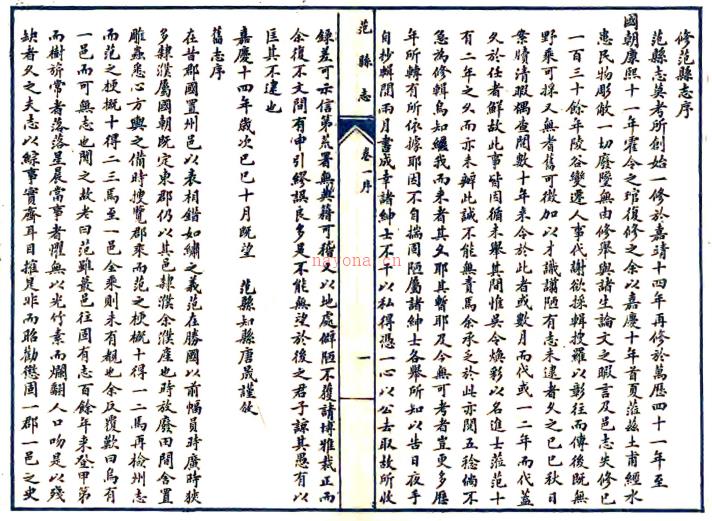 修范縣志序
范縣志莫考所創始一修於嘉靖十四年再修於萬曆四十一年至
國朝康熙十一年霍令之琯復修之余以嘉慶十年首夏蒞茲土甫經水
患民物彫敝一切廢墜無由修舉與諸生論文之暇言及邑志失修已
一百三十餘年陵谷變遷人事代謝欲採輯搜羅以彰往而傳後既無
野乘可採又無耆舊可徵加以才識譾陋有志未逮者久之己巳秋日
案牘清暇偶查閱數十年來令於此者或數月而代或一二年而代蓋
久於任者鮮故此事皆因循未舉其間惟吳令煥彩以名進士蒞范十
有二年之久而亦未辦此誠不能無責焉余承乏於此亦閱五稔倘不
急為修輯烏知繼我而來者其久耶其暫耶及今無可考者豈更多歷
年所轉有所依據耶因不自揣固陋屬諸紳士各舉所知以告日夜手
自抄輯閱兩月書成幸諸紳士不干以私得憑一心以公去取故所收
范縣志
卷一序
一
錄差可示信第荒署無典藉可稽又以地處僻陋不獲請博雅裁正而
余復不文間有申引繆誤良多是不能無望於後之君子諒其愚有以
匡其不逮也
嘉慶十四年歲次己巳十月既望 范縣知縣唐晟謹敘
舊志序
在昔郡國置州邑以表相錯如繡之義范在勝國以前幅員時廣時狹
多隸濮屬國朝既定東郡仍以其邑隸濮余濮產也時放廢田間舍置
雕蟲悉心方輿之備時搜覽郡乘而范之梗概十得一二焉再檢州志
而范之梗概十得二三焉至一邑全乘則未有覩也余反覆歎曰烏有
一邑而可無志也聞之故老曰范雖最邑往固有志百餘年來登甲第
而樹旂常者落落星晨當事者懼無以光竹素而爛翻人口吻是以殘
缺者久之夫志以綜事實齊耳目搉是非而昭勸懲固一郡一邑之史
nayona.cn